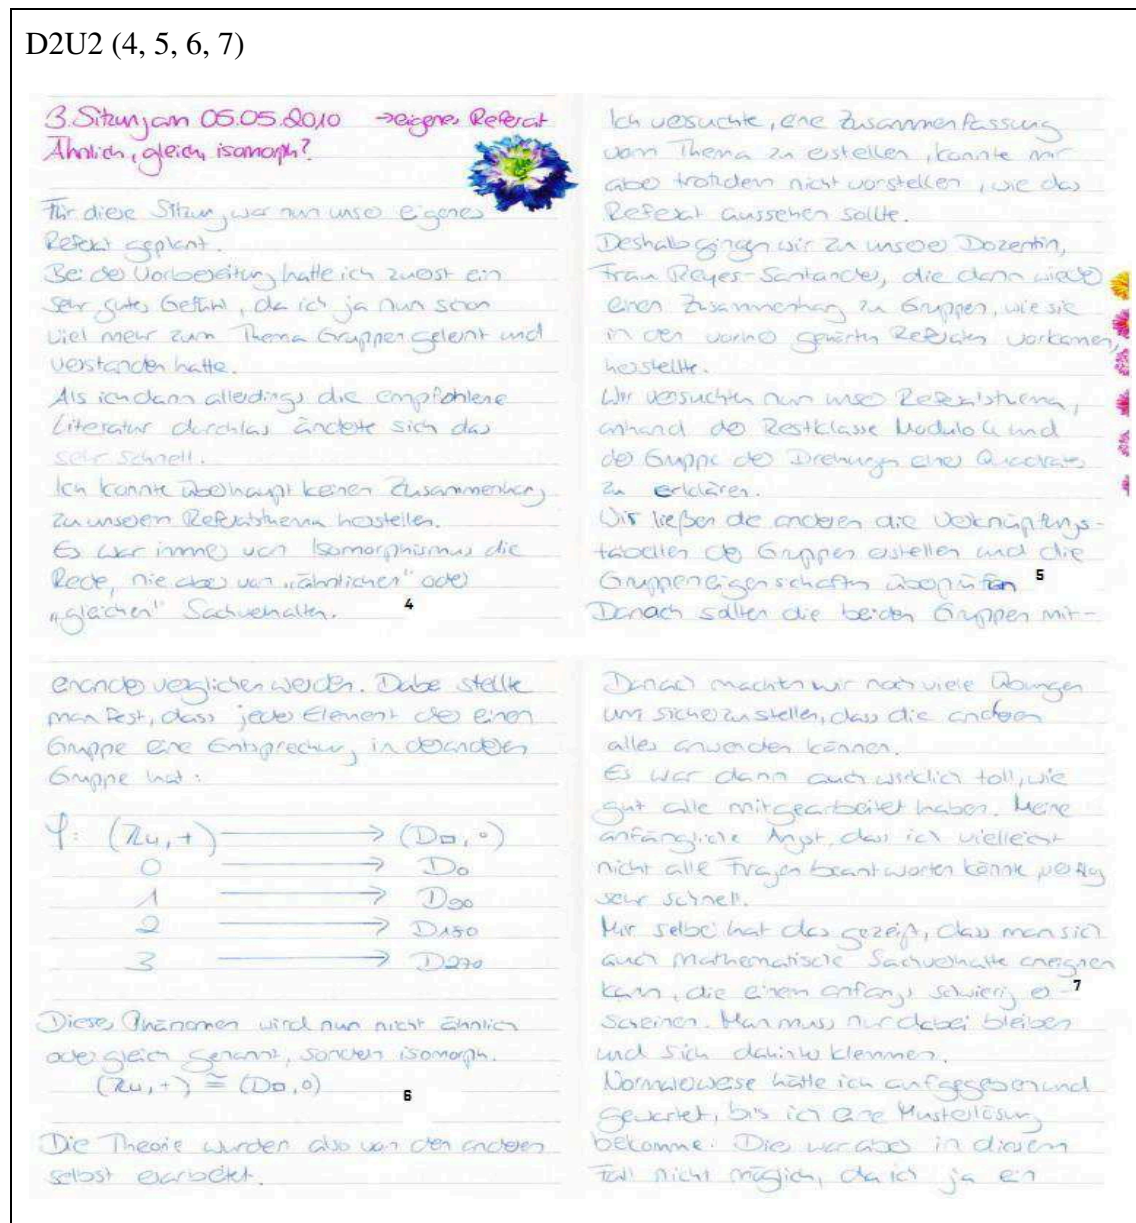 D2U2 (4, 5, 6, 7)
3. Sitzung am 05.05.2010 → eigenes Referat
Ähnlich, gleich, isomorph?
Für diese Sitzung war nun unser eigenes
Referat geplant.
Bei der Vorbereitung hatte ich zuerst ein
sehr gutes Gefühl, da ich ja nun schon
viel mehr zum Thema Gruppen gelernt und
verstanden hatte.
Als ich dann allerdings die empfohlene
Literatur durchlas änderte sich das
sehr schnell.
Ich konnte überhaupt keinen Zusammenhang
zu unserem Referatsthema herstellen.
Es war immer von Isomorphismus die
Rede, nie aber von „ähnlichen" oder
„gleichen" Sachverhalten.
4
Ich versuchte, eine Zusammenfassung
vom Thema zu erstellen, konnte mir
aber trotzdem nicht vorstellen, wie das
Referat aussehen sollte.
Deshalb gingen wir zu unserer Dozentin,
Frau Reyes-Santander, die dann wieder
einen Zusammenhang zu Gruppen, wie sie
in den vorher gehörten Referaten vorkamen,
herstellte.
Wir versuchten nun unser Referatsthema,
anhand der Restklasse Modulo 4 und
der Gruppe der Drehungen eines Quadrates
zu erklären.
Wir ließen die anderen die Verknüpfungs-
tabellen der Gruppen erstellen und die
Gruppeneigenschaften überprüfen
5
Danach sollten die beiden Gruppen mit-
einander verglichen werden. Dabei stellte
man fest, dass jedes Element der einen
Gruppe eine Entsprechung in der anderen
Gruppe hat:
φ: (ℤ4, +) → (D□, ∘)
0 → D0
1 → D90
2 → D180
3 → D270
Dieses Phänomen wird nun nicht ähnlich
oder gleich genannt, sondern isomorph.
(ℤ4, +) ≅ (D□, ∘)
6
Die Theorie wurden also von den anderen
selbst erarbeitet.
Danach machten wir noch viele Übungen
um sicherzustellen, dass die anderen
alles anwenden können.
Es war dann auch wirklich toll, wie
gut alle mitgearbeitet haben. Meine
anfängliche Angst, dass ich vielleicht
nicht alle Fragen beantworten könnte, verflog
sehr schnell.
Mir selber hat das gezeigt, dass man sich
auch mathematische Sachverhalte aneignen
kann, die einem anfangs schwierig er-
7
scheinen. Man muss nur dabei bleiben
und sich dahinter klemmen.
Normalerweise hätte ich aufgegeben und
gewartet, bis ich eine Musterlösung
bekomme. Dies war aber in diesem
Fall nicht möglich, da ich ja ein